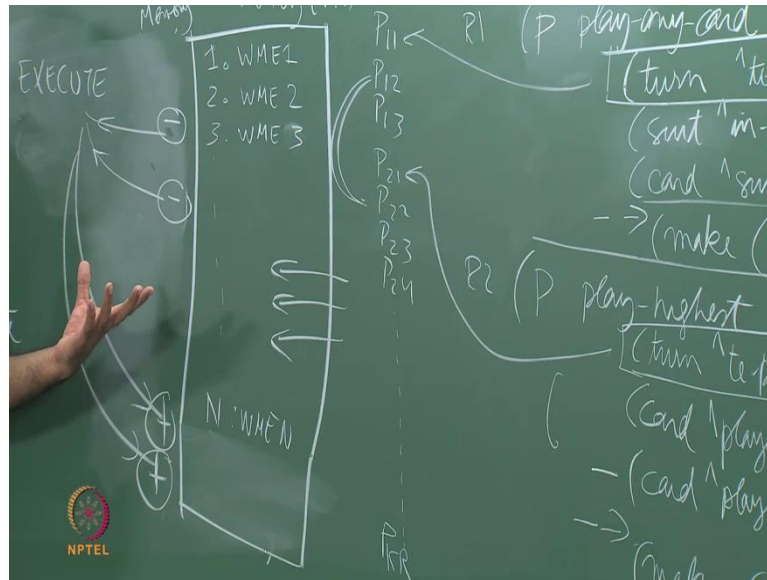 EXECUTE
1. WME1
2. WME 2
3. WME 3
N: WMEN
-
-
+
+
P11
P12
P13
P21
P22
P23
P24
PKR
R1 (P play-any-card
(turn ^te
(suit ^in-
(card ^su
--> (make (
R2 (P play-highest
(turn ^te
(card ^play
- (card ^play
-->
(make
NPTEL